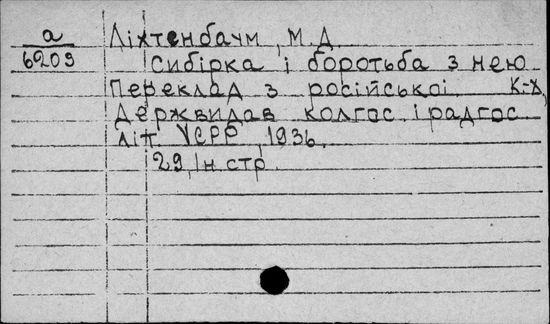 а
6203
Ліхтенбаум, М.Д.
Сибірка і боротьба з нею
Переклад з російської К-Х,
Держвидав колгос. і радгос
літ. УСРР, 1936,
29, Ін. стр.